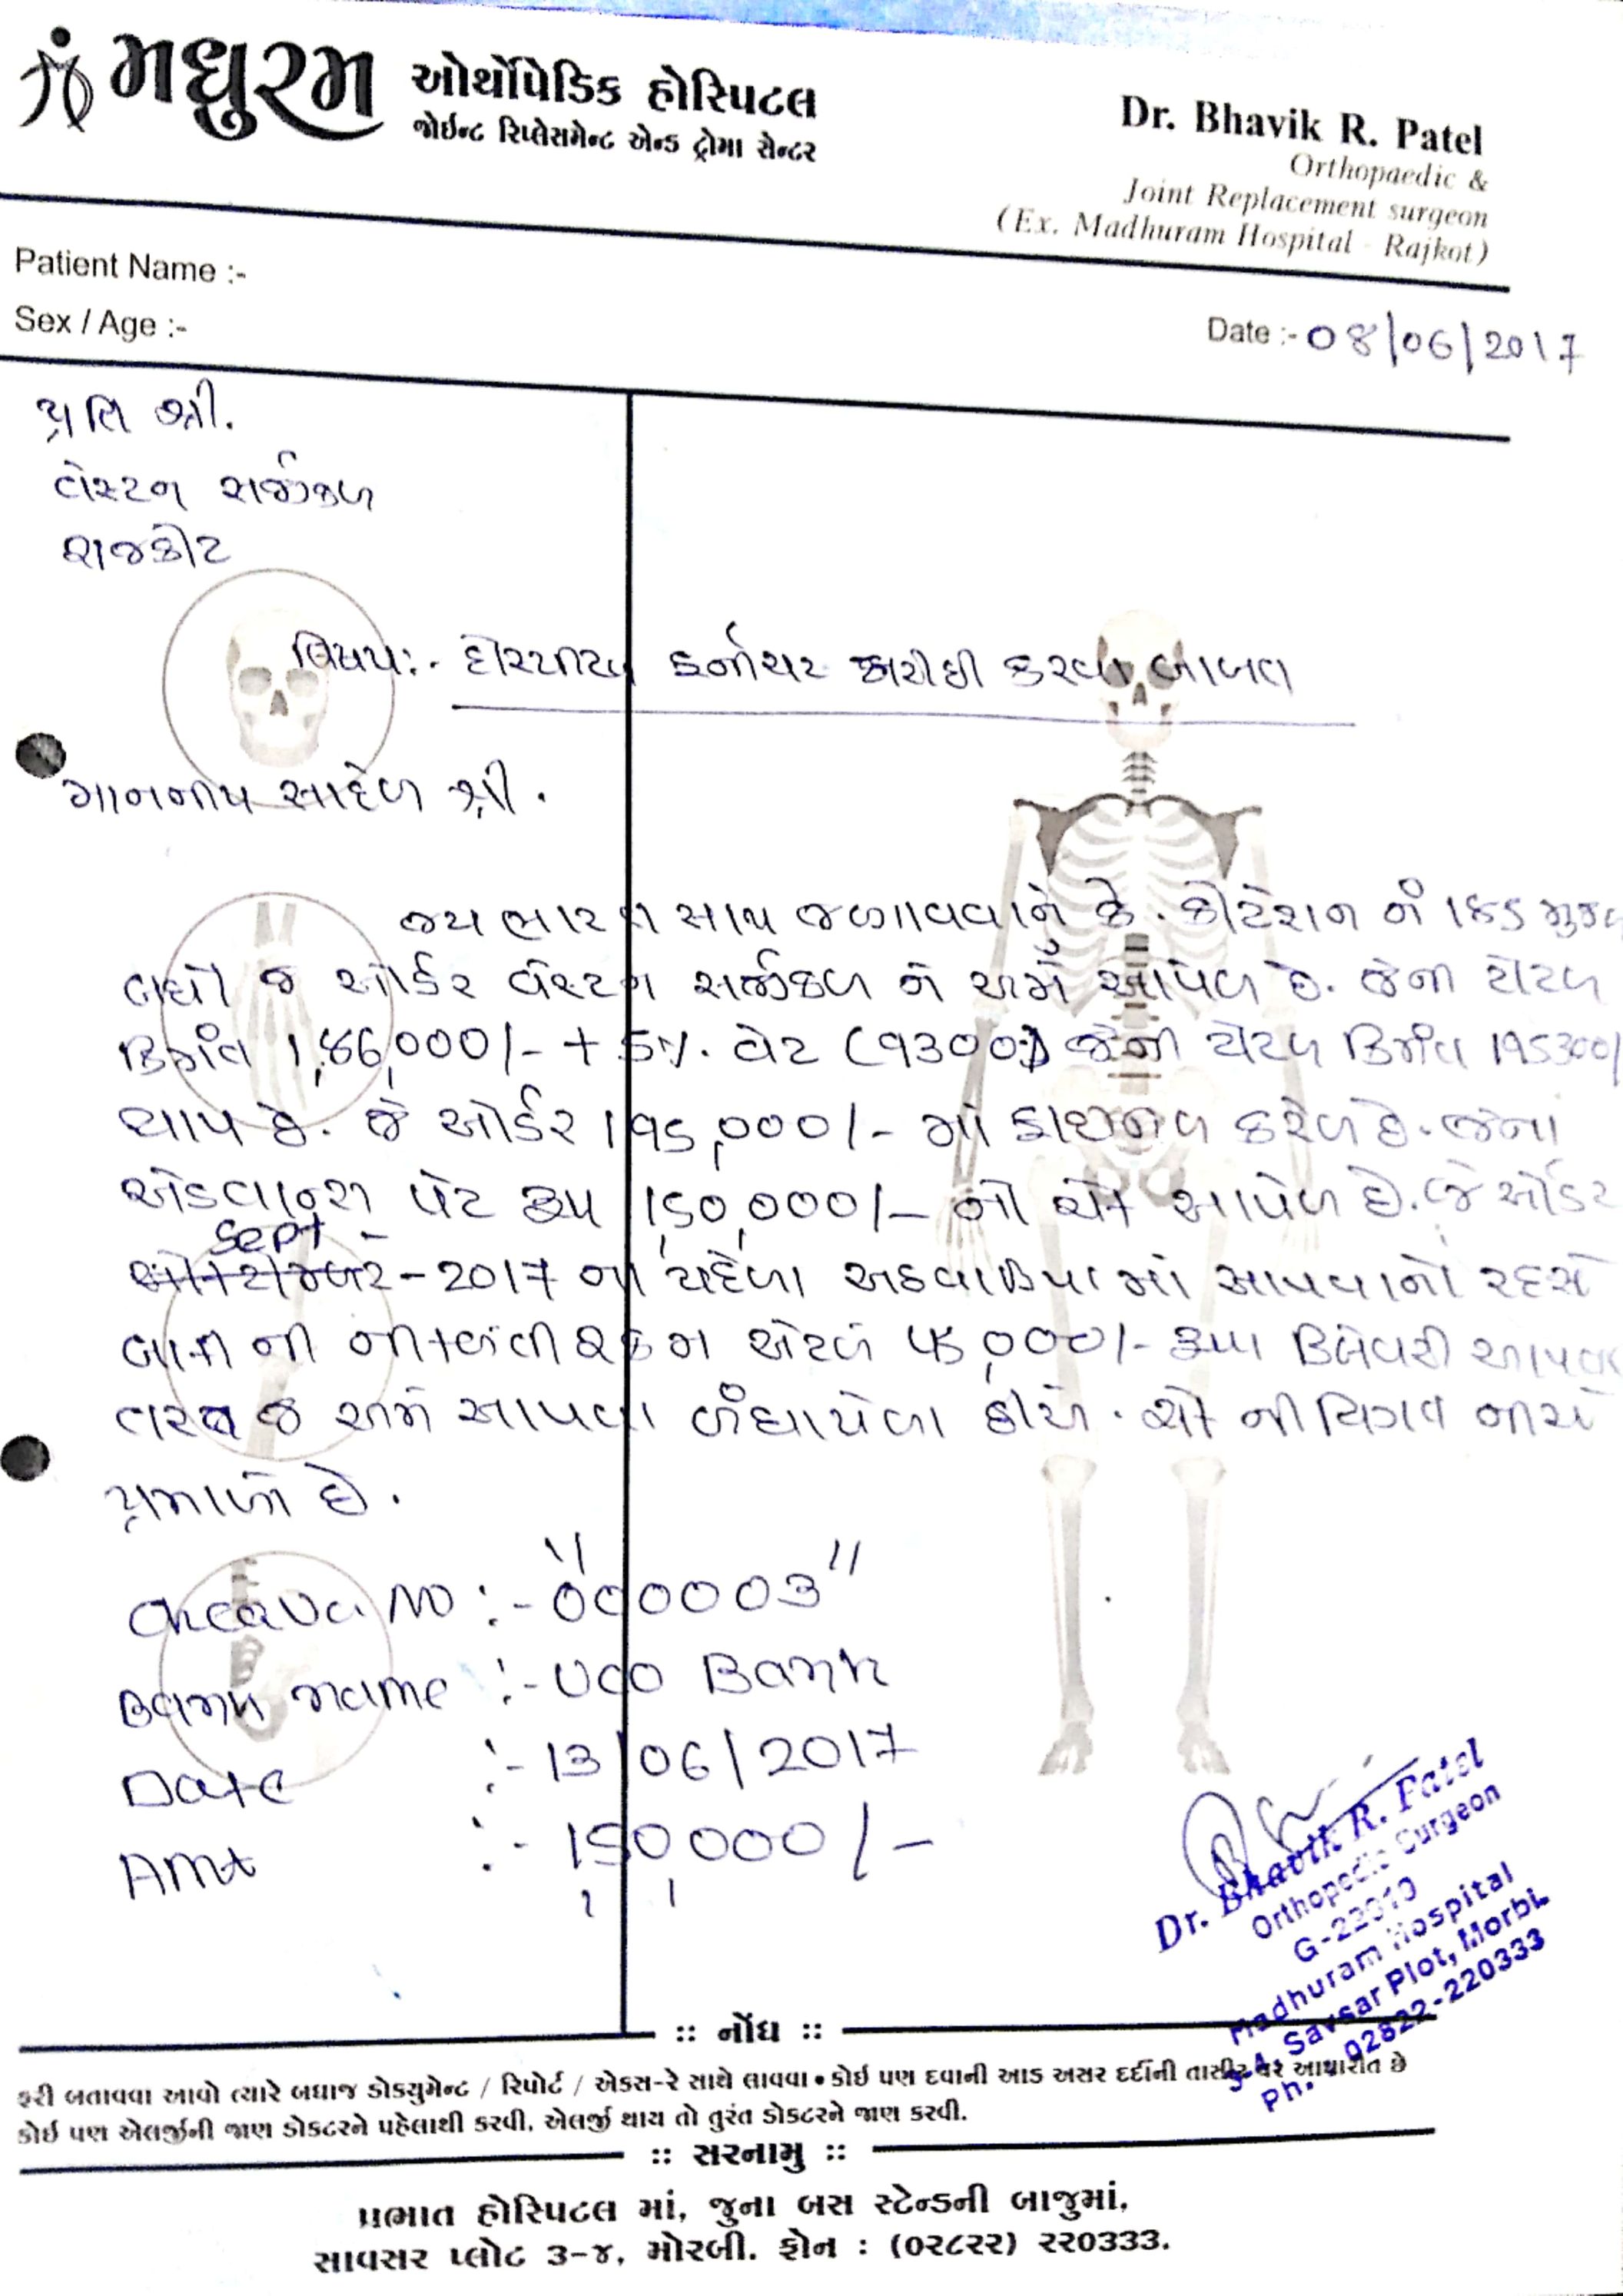 મધુરમ ઓર્થોપેડિક હોસ્પિટલ
જોઈન્ટ રિપ્લેસમેન્ટ એન્ડ ટ્રોમા સેન્ટર
Dr. Bhavik R. Patel
Orthopaedic &
Joint Replacement surgeon
(Ex. Madhuram Hospital - Rajkot)
Patient Name :-
Sex / Age :-
Date :- 08/06/2017
પ્રતિ શ્રી.
વેસ્ટન સર્જીકલ
રાજકોટ
વિષય:- હોસ્પીટલ ફર્નીચર ખરીદી કરવા બાબત
માનનીય સાહેબ શ્રી.
જય ભારત સાથ જણાવવાનું કે. કોટેશન નં 185 મુજબ
બધો જ ઓર્ડર વેસ્ટન સર્જીકલ ને અમે આપેલ છે. જેની ટોટલ
કિંમત 1,86,000/- + 5%. વેટ (9300) જેની ટોટલ કિંમત 195300/
થાય છે. જે ઓર્ડર 195,000/- માં ફાઇનલ કરેલ છે. જેના
એડવાન્સ પેટે રૂપ 150,000/- નો ચેક આપેલ છે. જે ઓર્ડર
Sept -
ઓક્ટોમ્બર-2017 ના પહેલા અઠવાડિયામાં આપવાનો રહેશે
બાકી ની નીકળતી રકમ એટલે 45,000/- રૂપા ડિલેવરી આપવા
તરત જ અમે આપવા બંધાયેલા છીએ. ચેક ની વિગત નીચે
પ્રમાણે છે.
Cheque No :- "000003"
Bank name :- UCO Bank
Date :- 13/06/2017
Amt :- 150,000/-
Dr. Bhavik R. Patel
Orthopedic Surgeon
Madhuram Hospital
3-4, Savsar Plot, Morbi.
Ph. 02822-220333
:: નોંધ ::
ફરી બતાવવા આવો ત્યારે બધાજ ડોકયુમેન્ટ / રિપોર્ટ / એકસ-રે સાથે લાવવા • કોઈ પણ દવાની આડ અસર દર્દીની તાસીર પર આધારીત છે
કોઈ પણ એલર્જીની જાણ ડોકટરને પહેલાથી કરવી. એલર્જી થાય તો તુરંત ડોકટરને જાણ કરવી.
:: સરનામુ ::
પ્રભાત હોસ્પિટલ માં, જુના બસ સ્ટેન્ડની બાજુમાં,
સાવસર પ્લોટ ૩-૪, મોરબી. ફોન : (૦૨૮૨૨) ૨૨૦૩૩૩.